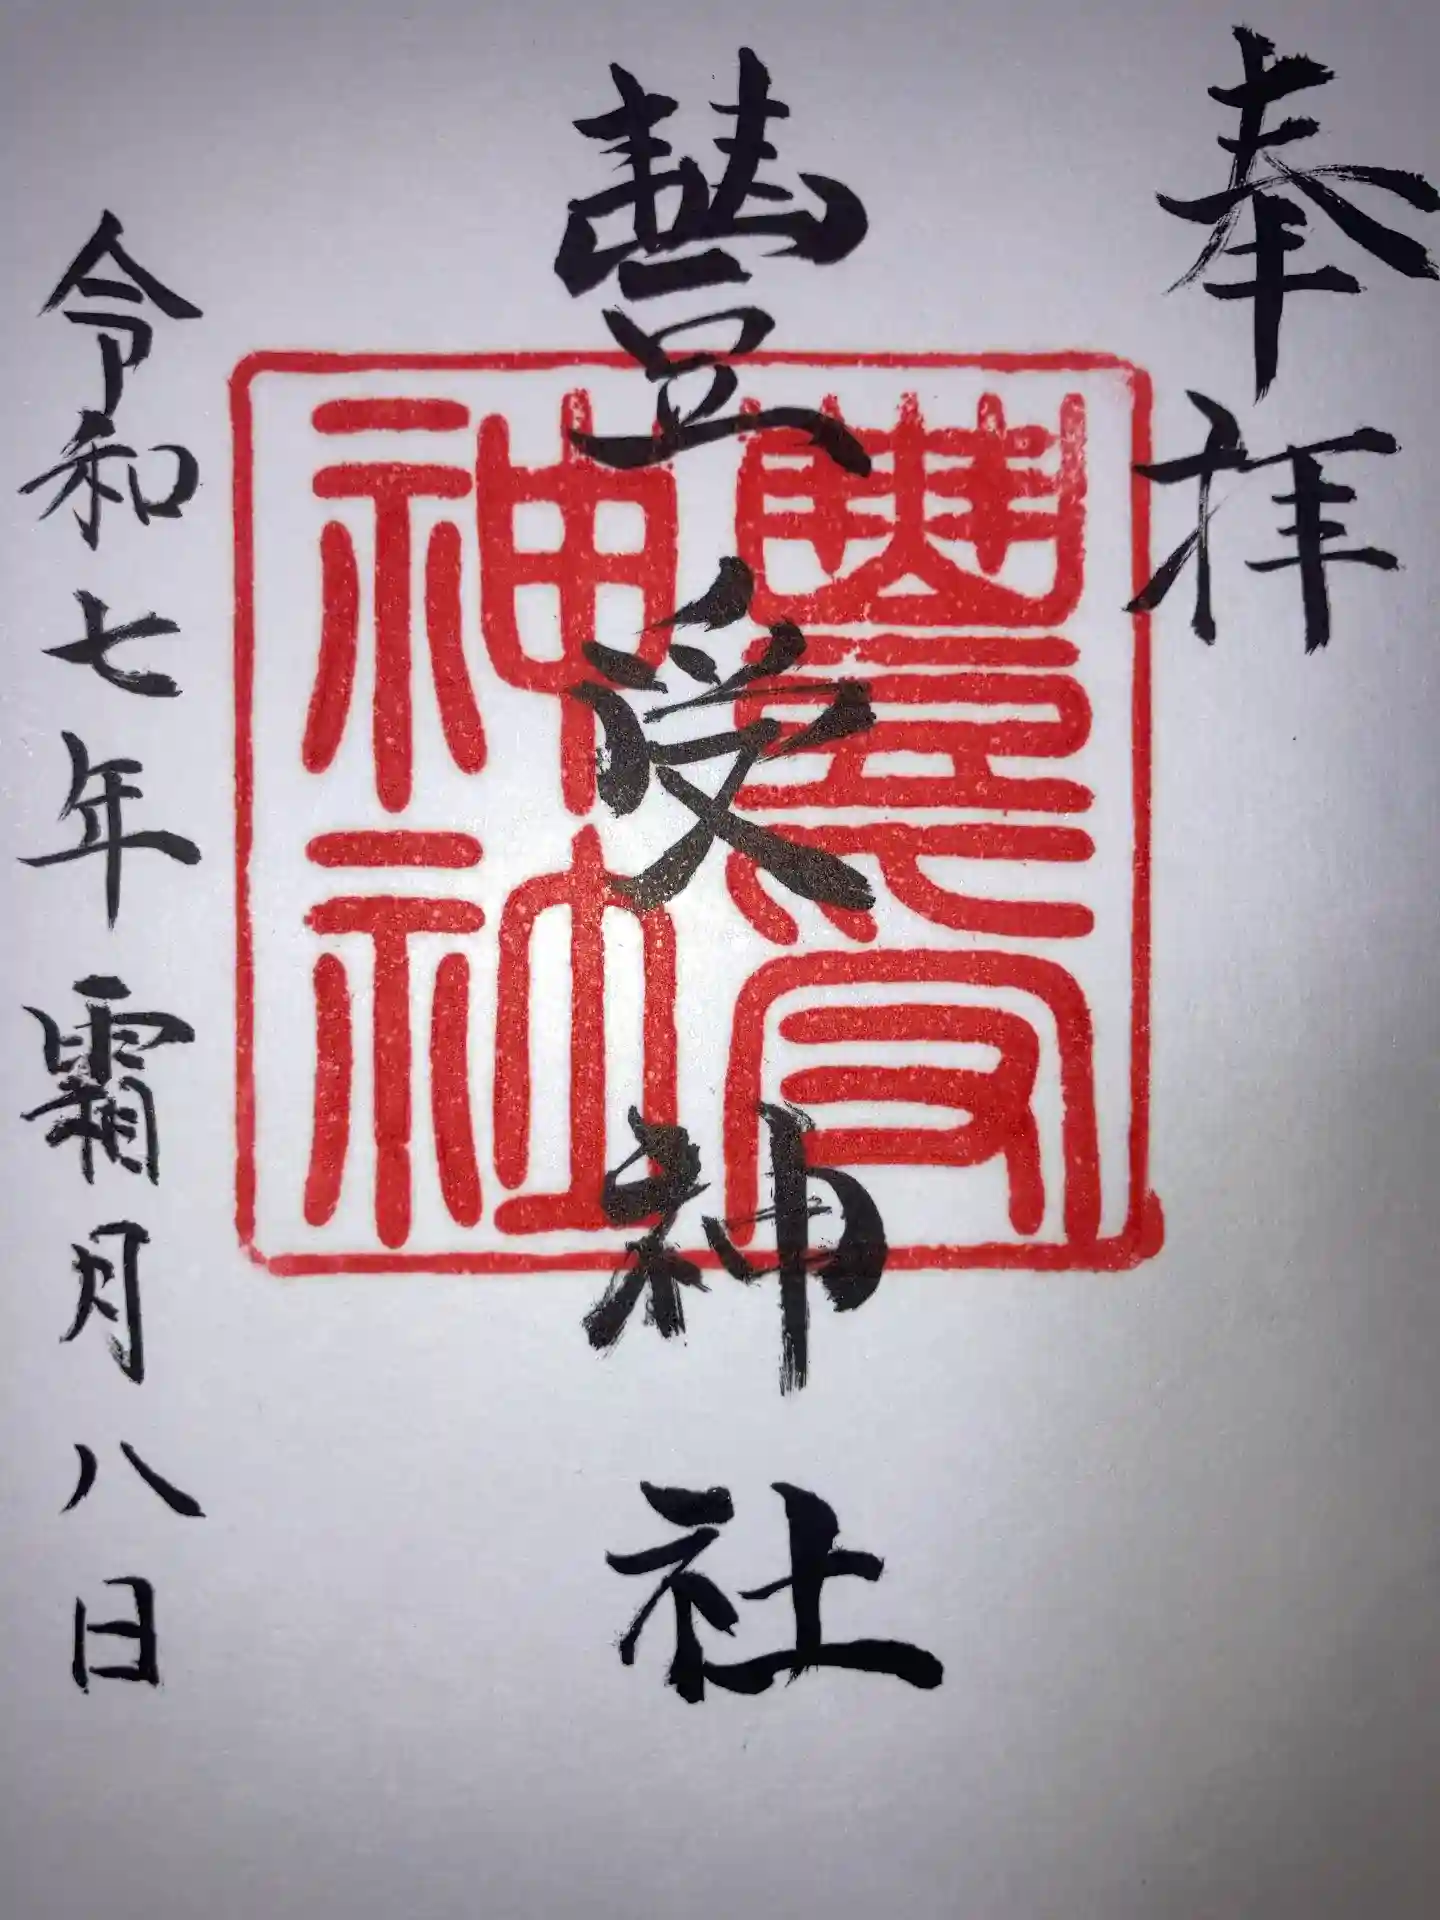 奉拝
豐受神社
豐受神社
令和七年霜月八日